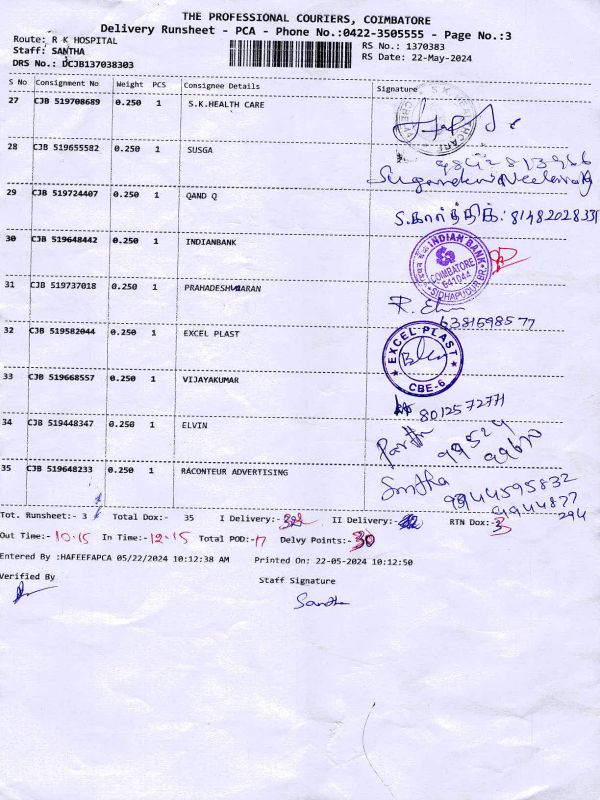 THE PROFESSIONAL COURIERS, COIMBATORE
Delivery Runsheet - PCA - Phone No.:0422-3505555 - Page No.:3
Route: R K HOSPITAL
RS No.: 1370383
Staff: SANTHA
RS Date: 22-May-2024
DRS No.: DCJB137038303
S No Consignment No Weight PCS Consignee Details Signature
27 CJB 519708689 0.250 1 S.K.HEALTH CARE
28 CJB 519655582 0.250 1 SUSGA
29 CJB 519724407 0.250 1 QAND Q
S.கார்த்திக்: 8148202833
30 CJB 519648442 0.250 1 INDIANBANK
INDIAN BANK
COIMBATORE
641044
SIDHAPUDUR BR.
31 CJB 519737018 0.250 1 PRAHADESHWARAN
6381598577
32 CJB 519582044 0.250 1 EXCEL PLAST
EXCEL PLAST
CBE-6
33 CJB 519668557 0.250 1 VIJAYAKUMAR
8012572771
34 CJB 519448347 0.250 1 ELVIN
99524
99670
35 CJB 519648233 0.250 1 RACONTEUR ADVERTISING
Smitha
9944595832
9944877
294
Tot. Runsheet:- 3 Total Dox:- 35 I Delivery:- II Delivery:- RTN Dox:-
Out Time:- 10.15 In Time:- 12.15 Total POD:- 17 Delvy Points:- 30
Entered By :HAFEEFAPCA 05/22/2024 10:12:38 AM Printed On: 22-05-2024 10:12:50
Verified By Staff Signature
Santha